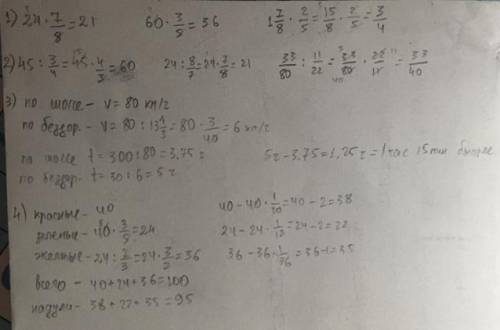 1) 24 · 7/8 = 21 60 · 3/5 = 36 1 7/8 · 2/5 = 15/8 · 2/5 = 3/4
2) 45 : 3/4 = 45 · 4/3 = 60 24 : 8/7 = 24 · 7/8 = 21 33/80 : 11/22 = 33/80 · 22/11 = 33/40
3) по шоссе - v = 80 км/ч
по бездор. - v = 80 : 13 1/3 = 80 · 3/40 = 6 км/ч
по шоссе t = 300 : 80 = 3,75 ч 5ч - 3.75 = 1,25 ч = 1 час 15 мин быстрее
по бездор. t = 30 : 6 = 5 ч
4) красные - 40 40 - 40 · 1/20 = 40 - 2 = 38
зеленые - 40 · 3/5 = 24 24 - 24 · 1/12 = 24 - 2 = 22
желтые - 24 : 2/3 = 24 · 3/2 = 36 36 - 36 · 1/36 = 36 - 1 = 35
всего - 40 + 24 + 36 = 100
надули - 38 + 22 + 35 = 95